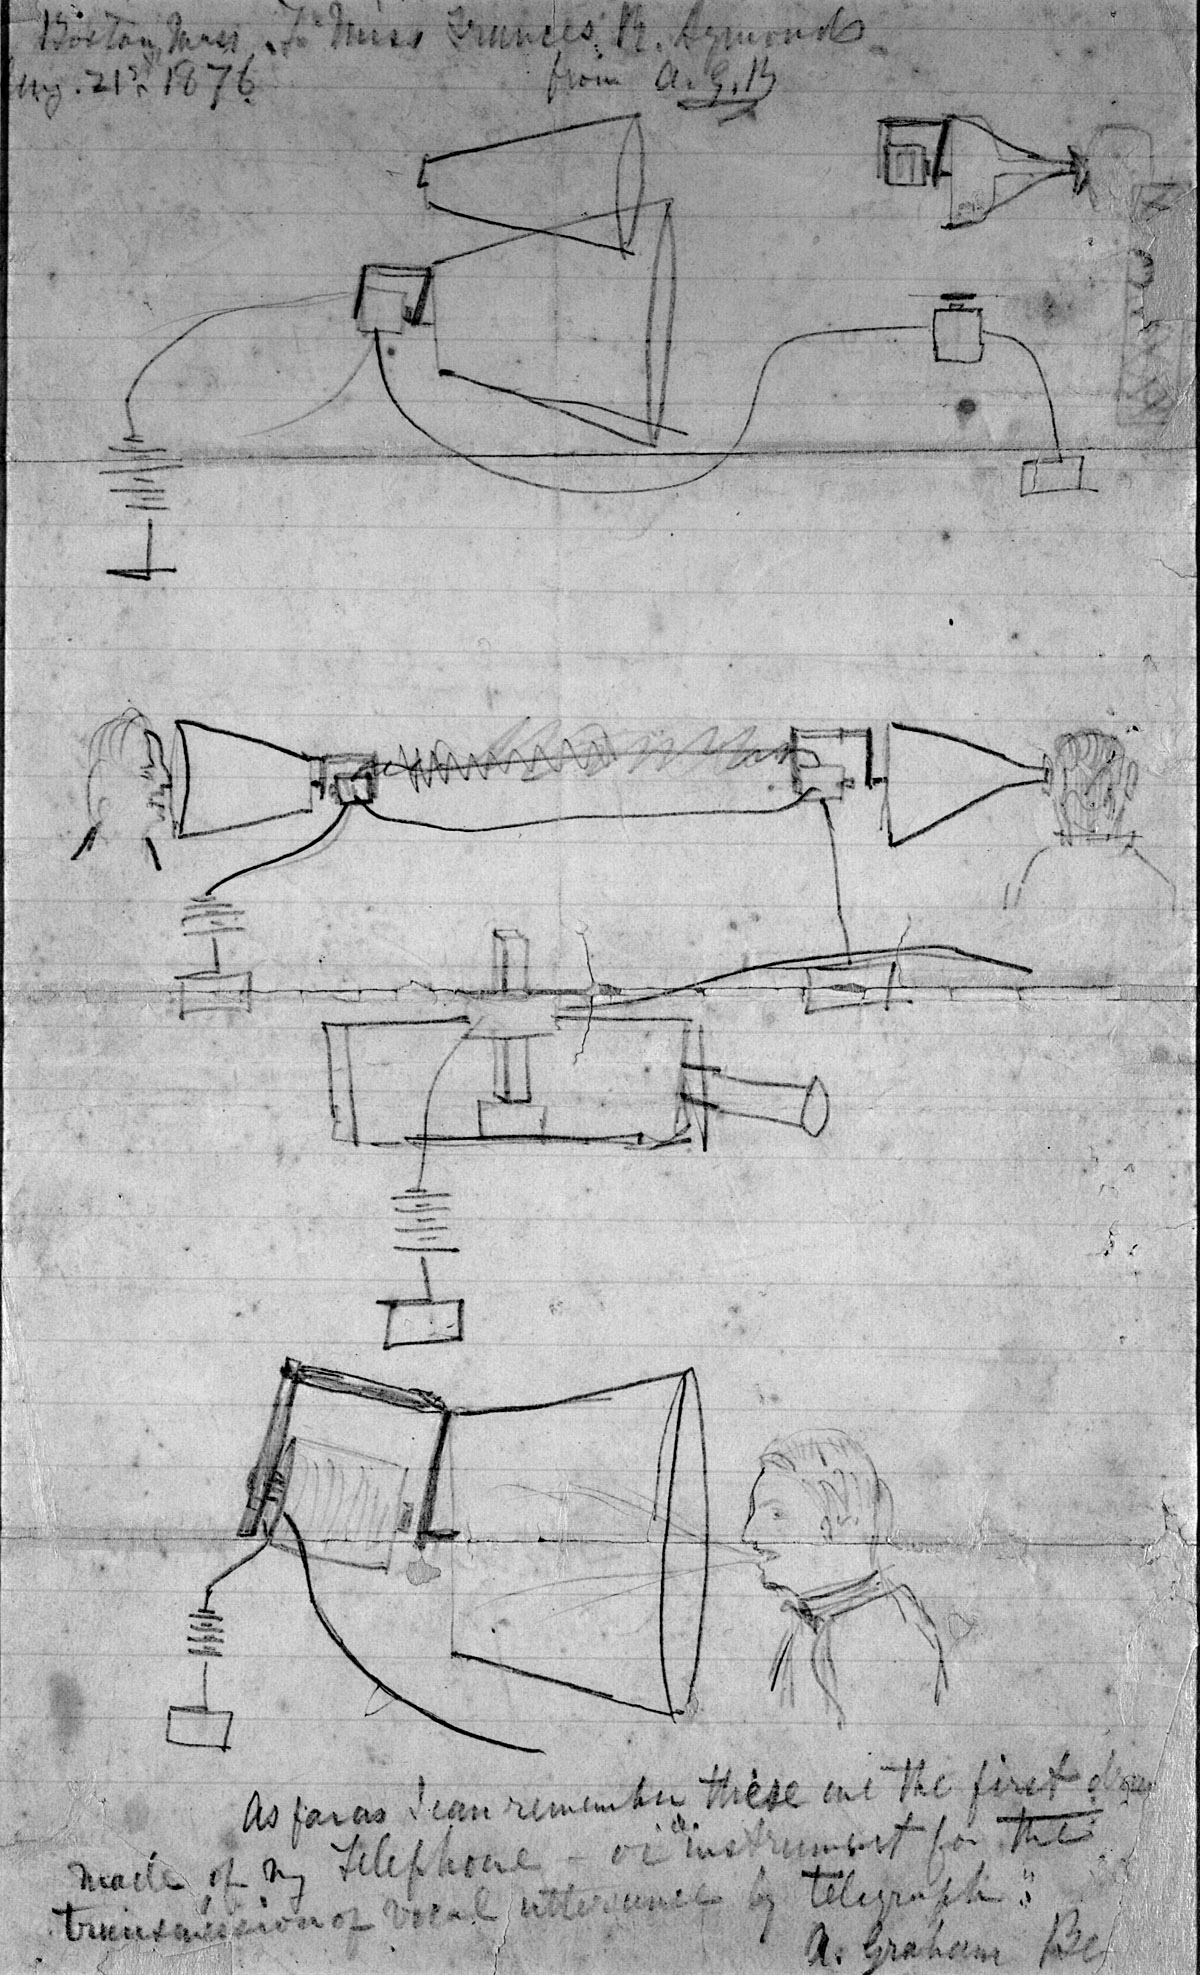 Boston, Mass. To Miss Frances M. Symonds
Aug. 21st 1876. from A.G.B
As far as I can remember these are the first
made of my telephone - or "instrument for the
transmission of vocal utterance by telegraph".
A. Graham Be